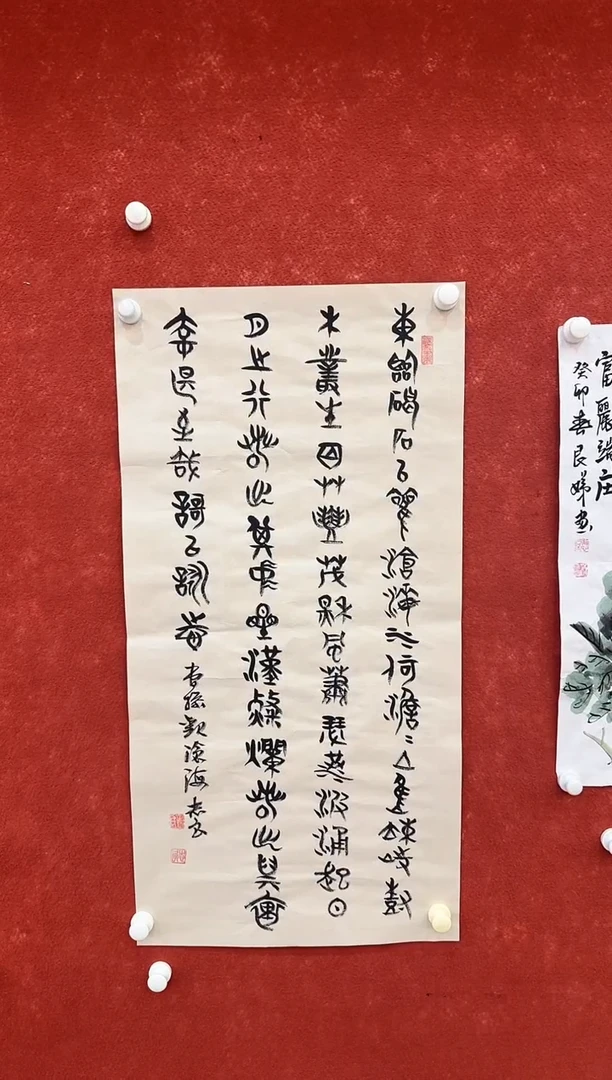 東臨碣石以觀滄海水何澹澹山島竦峙樹
木叢生百草豐茂秋風蕭瑟洪波涌起日
月之行若出其中星漢燦爛若出其裏
幸甚至哉歌以詠志
曹操觀滄海
富麗端庄
癸卯春良娣画